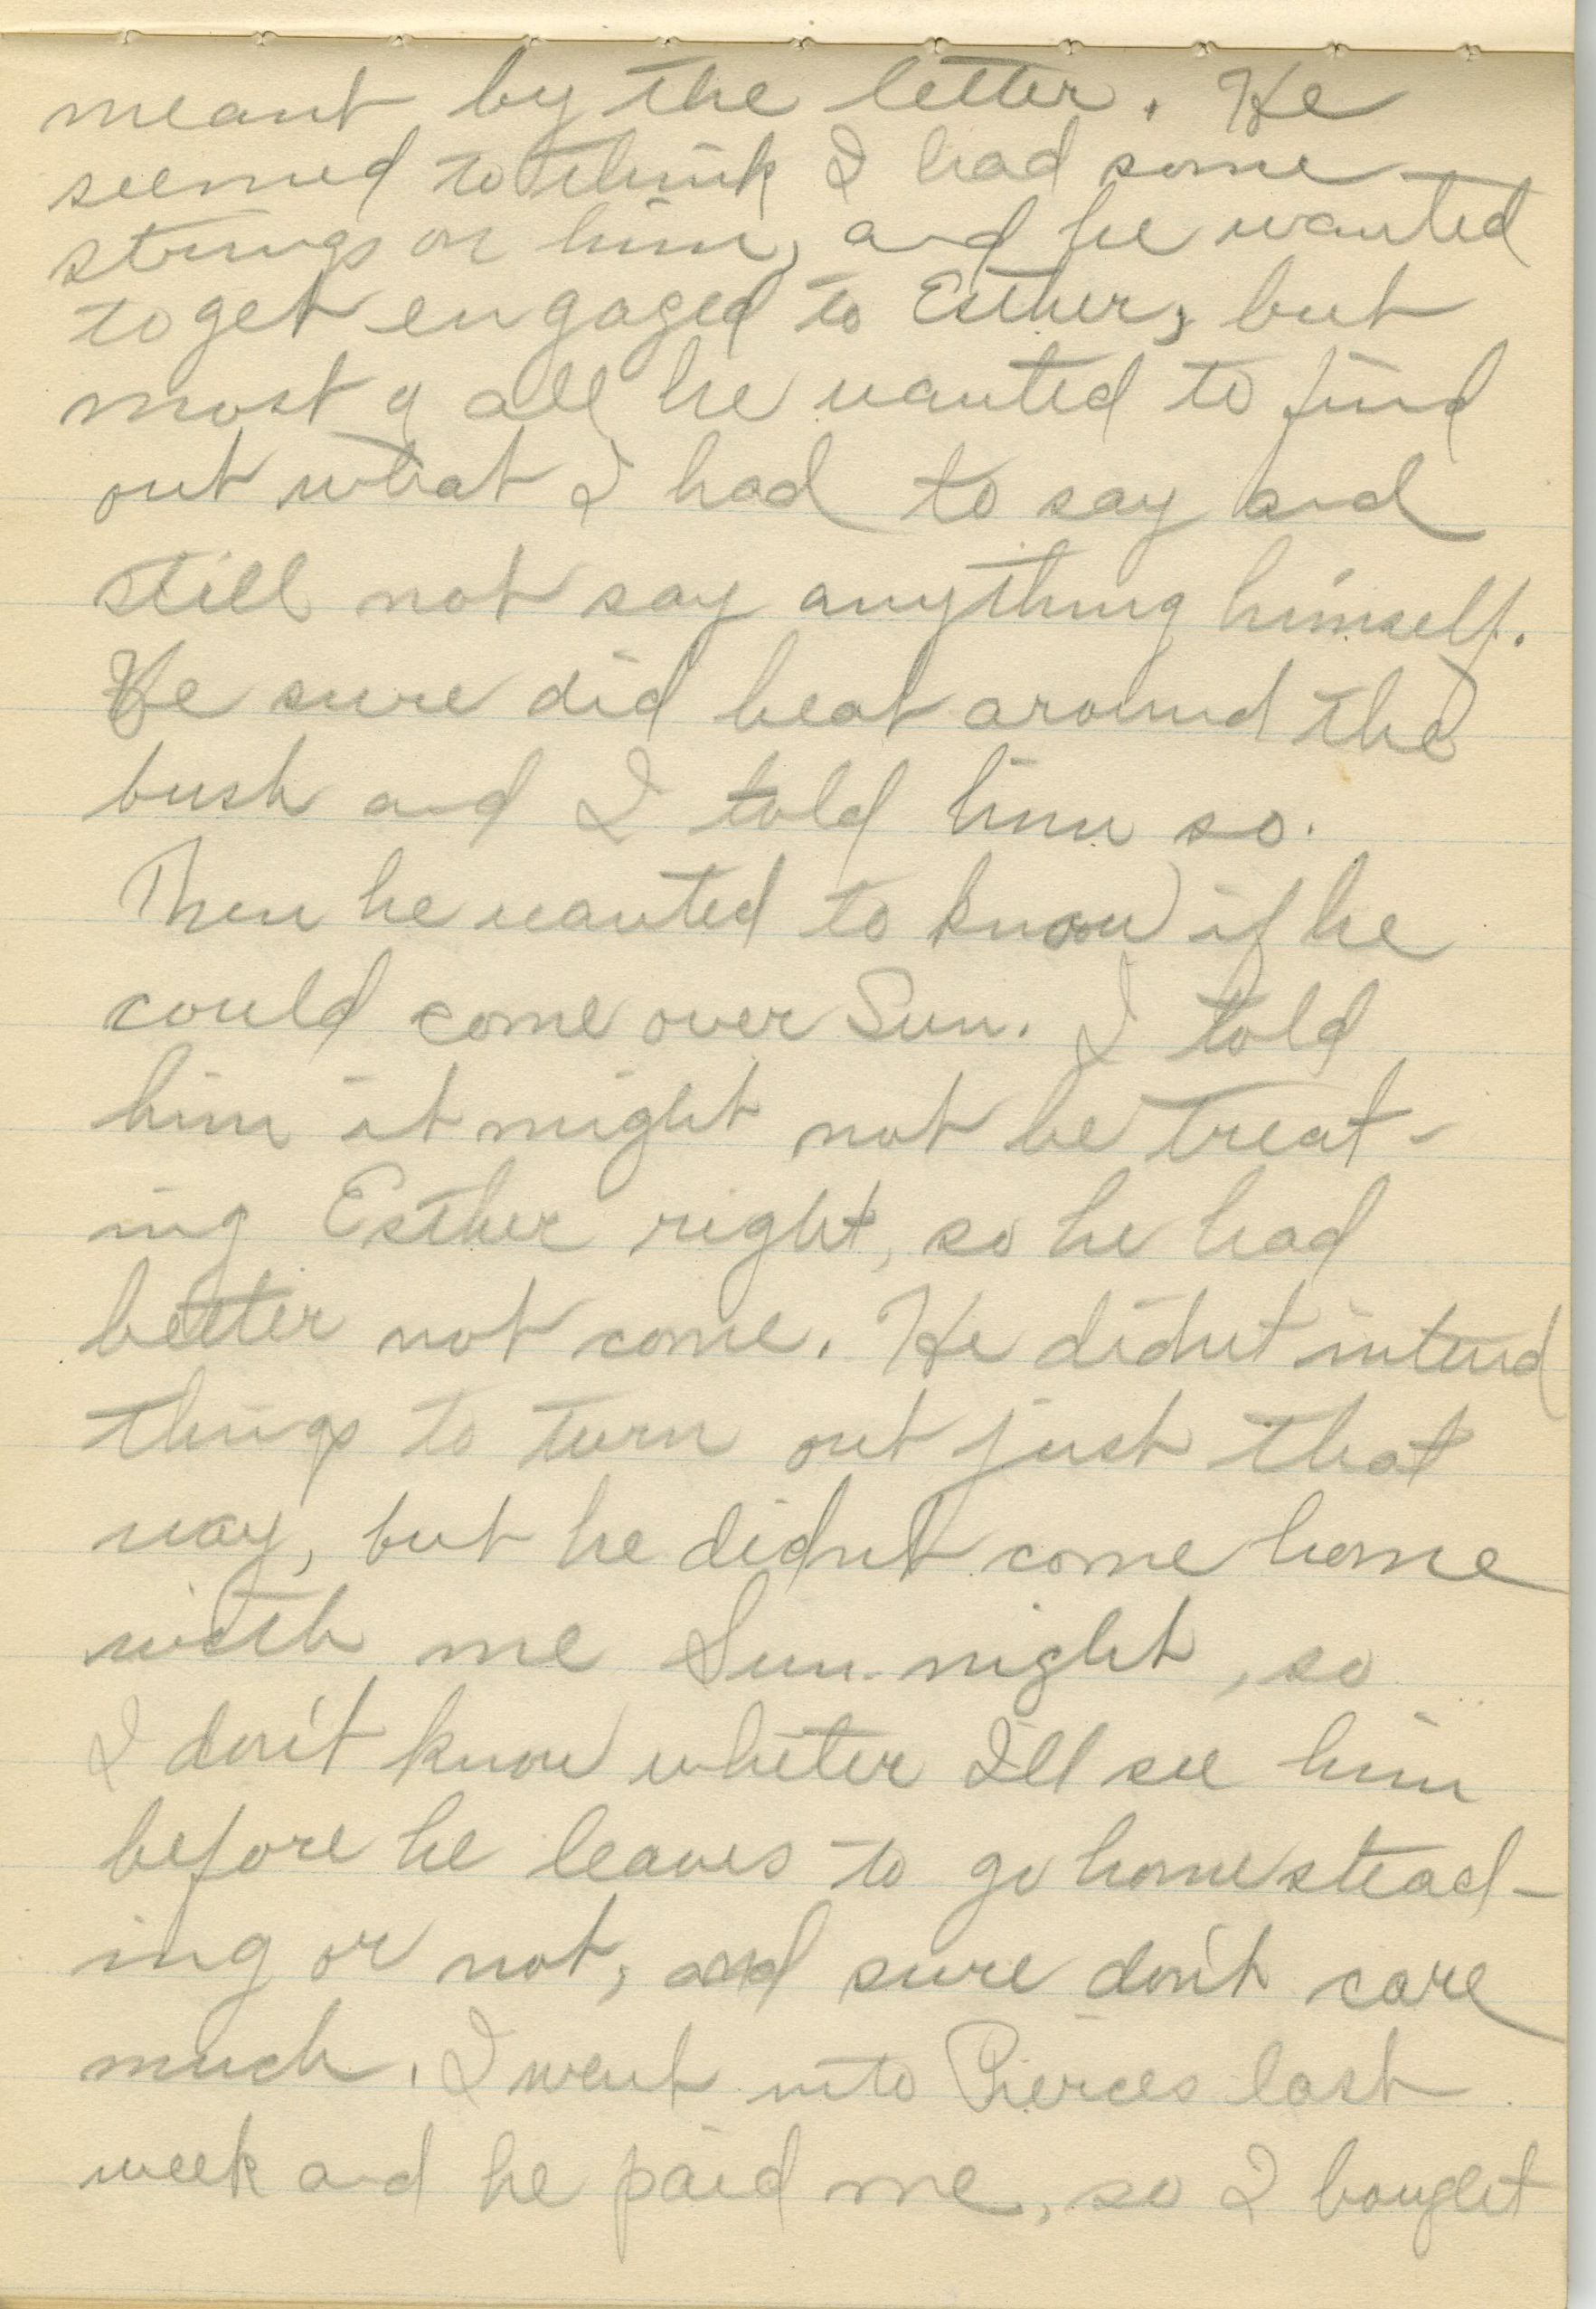 meant by the letter. He
seemed to think I had some
strings on him, and he wanted
to get engaged to Esther, but
most of all he wanted to find
out what I had to say and
still not say anything himself.
He sure did beat around the
bush and I told him so.
Then he wanted to know if he
could come over Sun. I told
him it might not be treat-
ing Esther right, so he had
better not come. He didnt intend
things to turn out just that
way, but he didnt come home
with me Sun. night, so
I don't know wheter I'll see him
before he leaves to go homestead-
ing or not, and sure don't care
much. I went into Pierces last
week and he paid me, so I bought